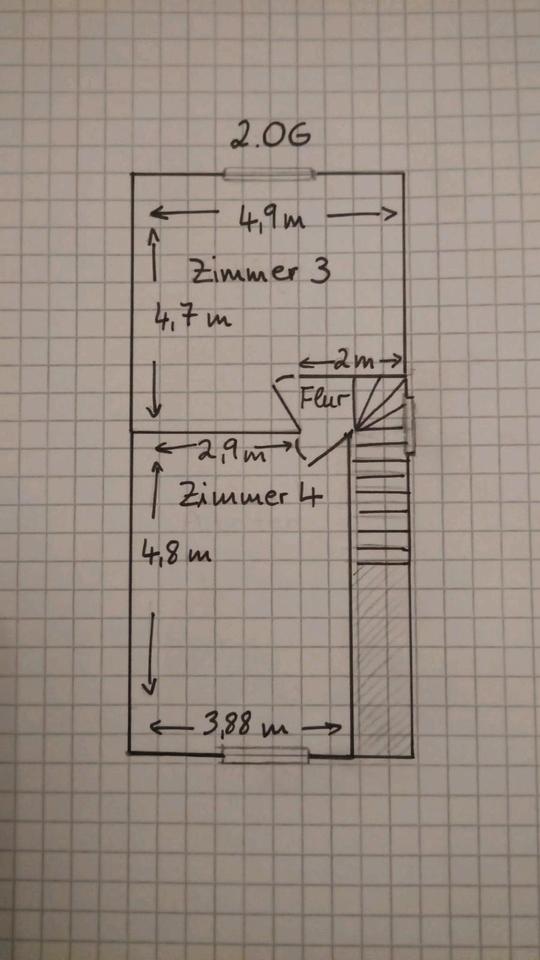 2.OG
4,9m
Zimmer 3
4,7 m
2m
Flur
2,9m
Zimmer 4
4,8 m
3,88 m